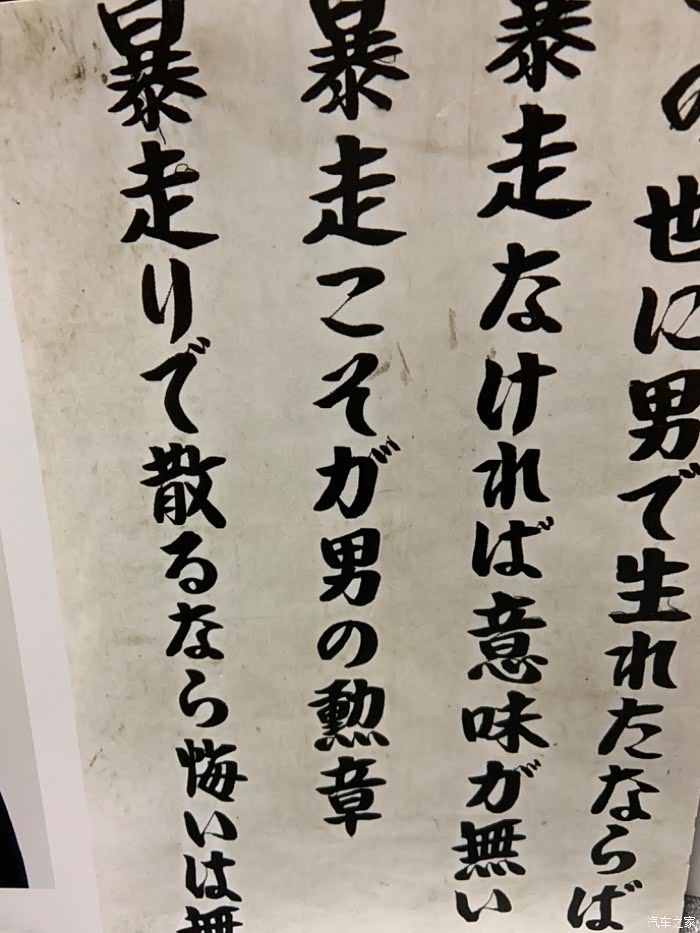 の世に男で生れたならば
暴走なければ意味が無い
暴走こそが男の勲章
暴走りで散るなら悔いは無
汽车之家